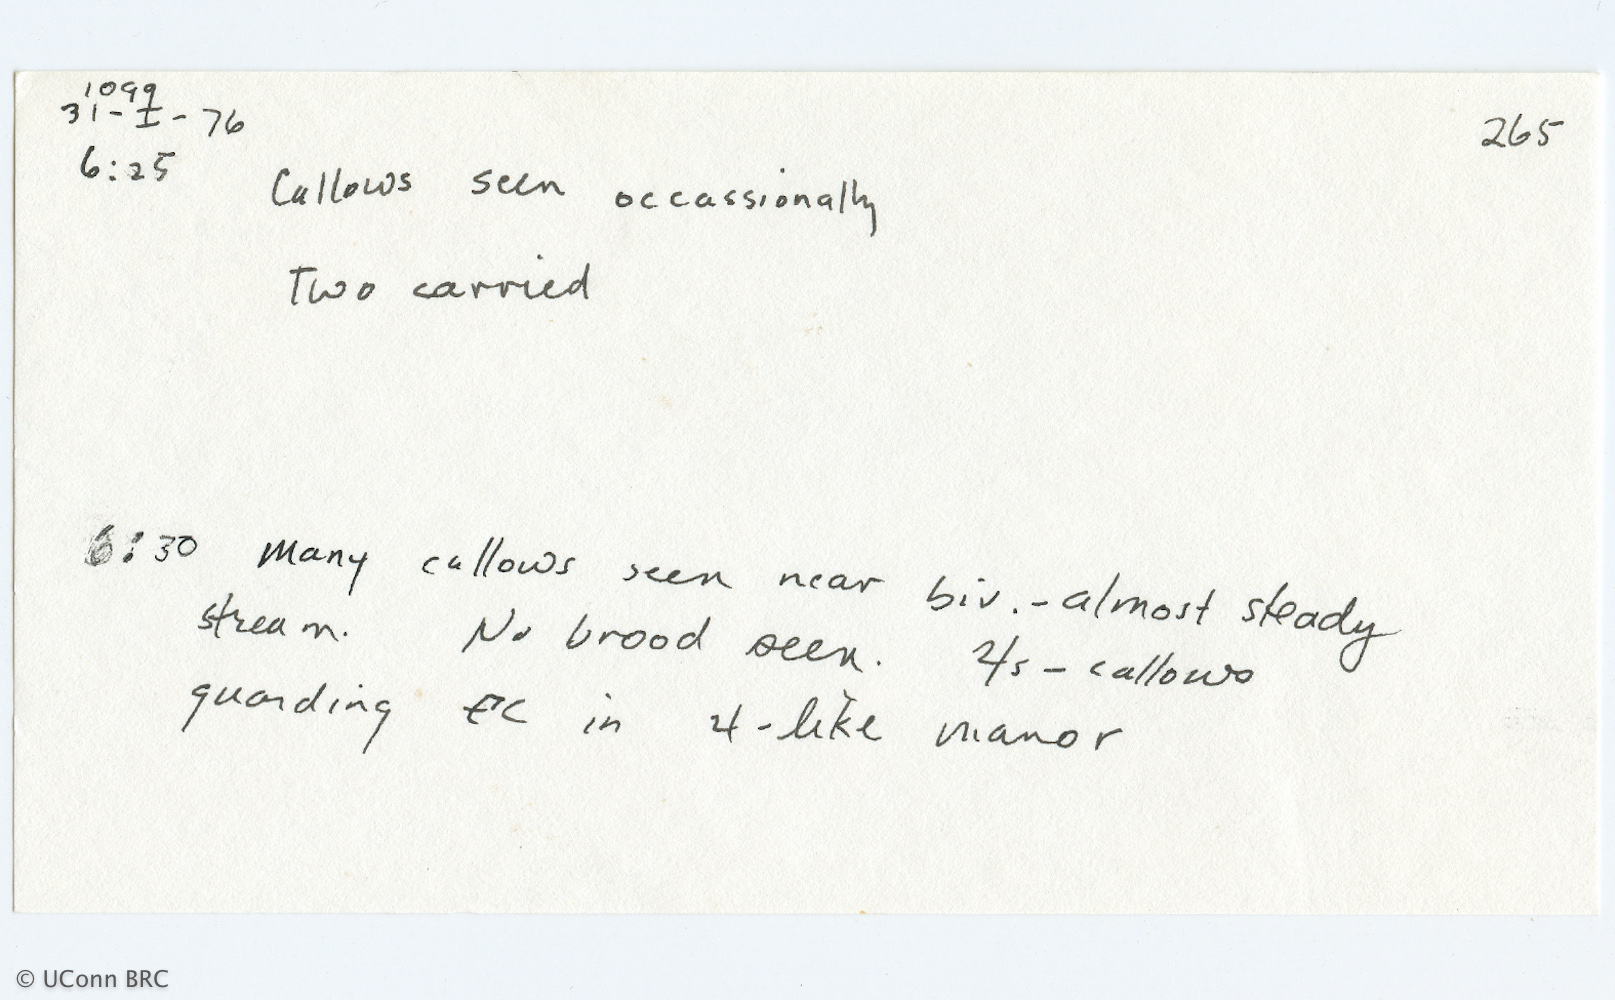 1099
31-I-76
265
6:25 Callows seen occassionally
Two carried
6:30 Many callows seen near biv. - almost steady
stream. No brood seen. 4s - callows
guarding EC in 4-like manor
© UConn BRC